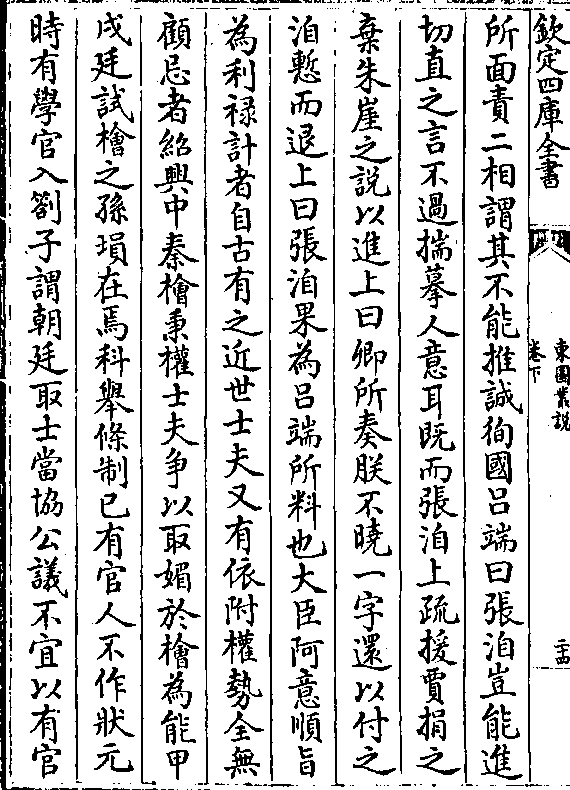 欽定四庫全書
東園叢説
卷下
二十四
所面責二相謂其不能推誠徇國呂端曰張洎豈能進
切直之言不過揣摹人意耳既而張洎上疏援賈捐之
棄朱崖之説以進上曰卿所奏朕不曉一字還以付之
洎慙而退上曰張洎果為呂端所料也大臣阿意順㫖
為利禄計者自古有之近世士夫又有依附權勢全無
顧忌者紹興中秦檜秉權士夫争以取媚於檜為能甲
戌廷試檜之孫塤在焉科舉條制已有官人不作狀元
時有學官入劄子謂朝廷取士當協公議不宜以有官